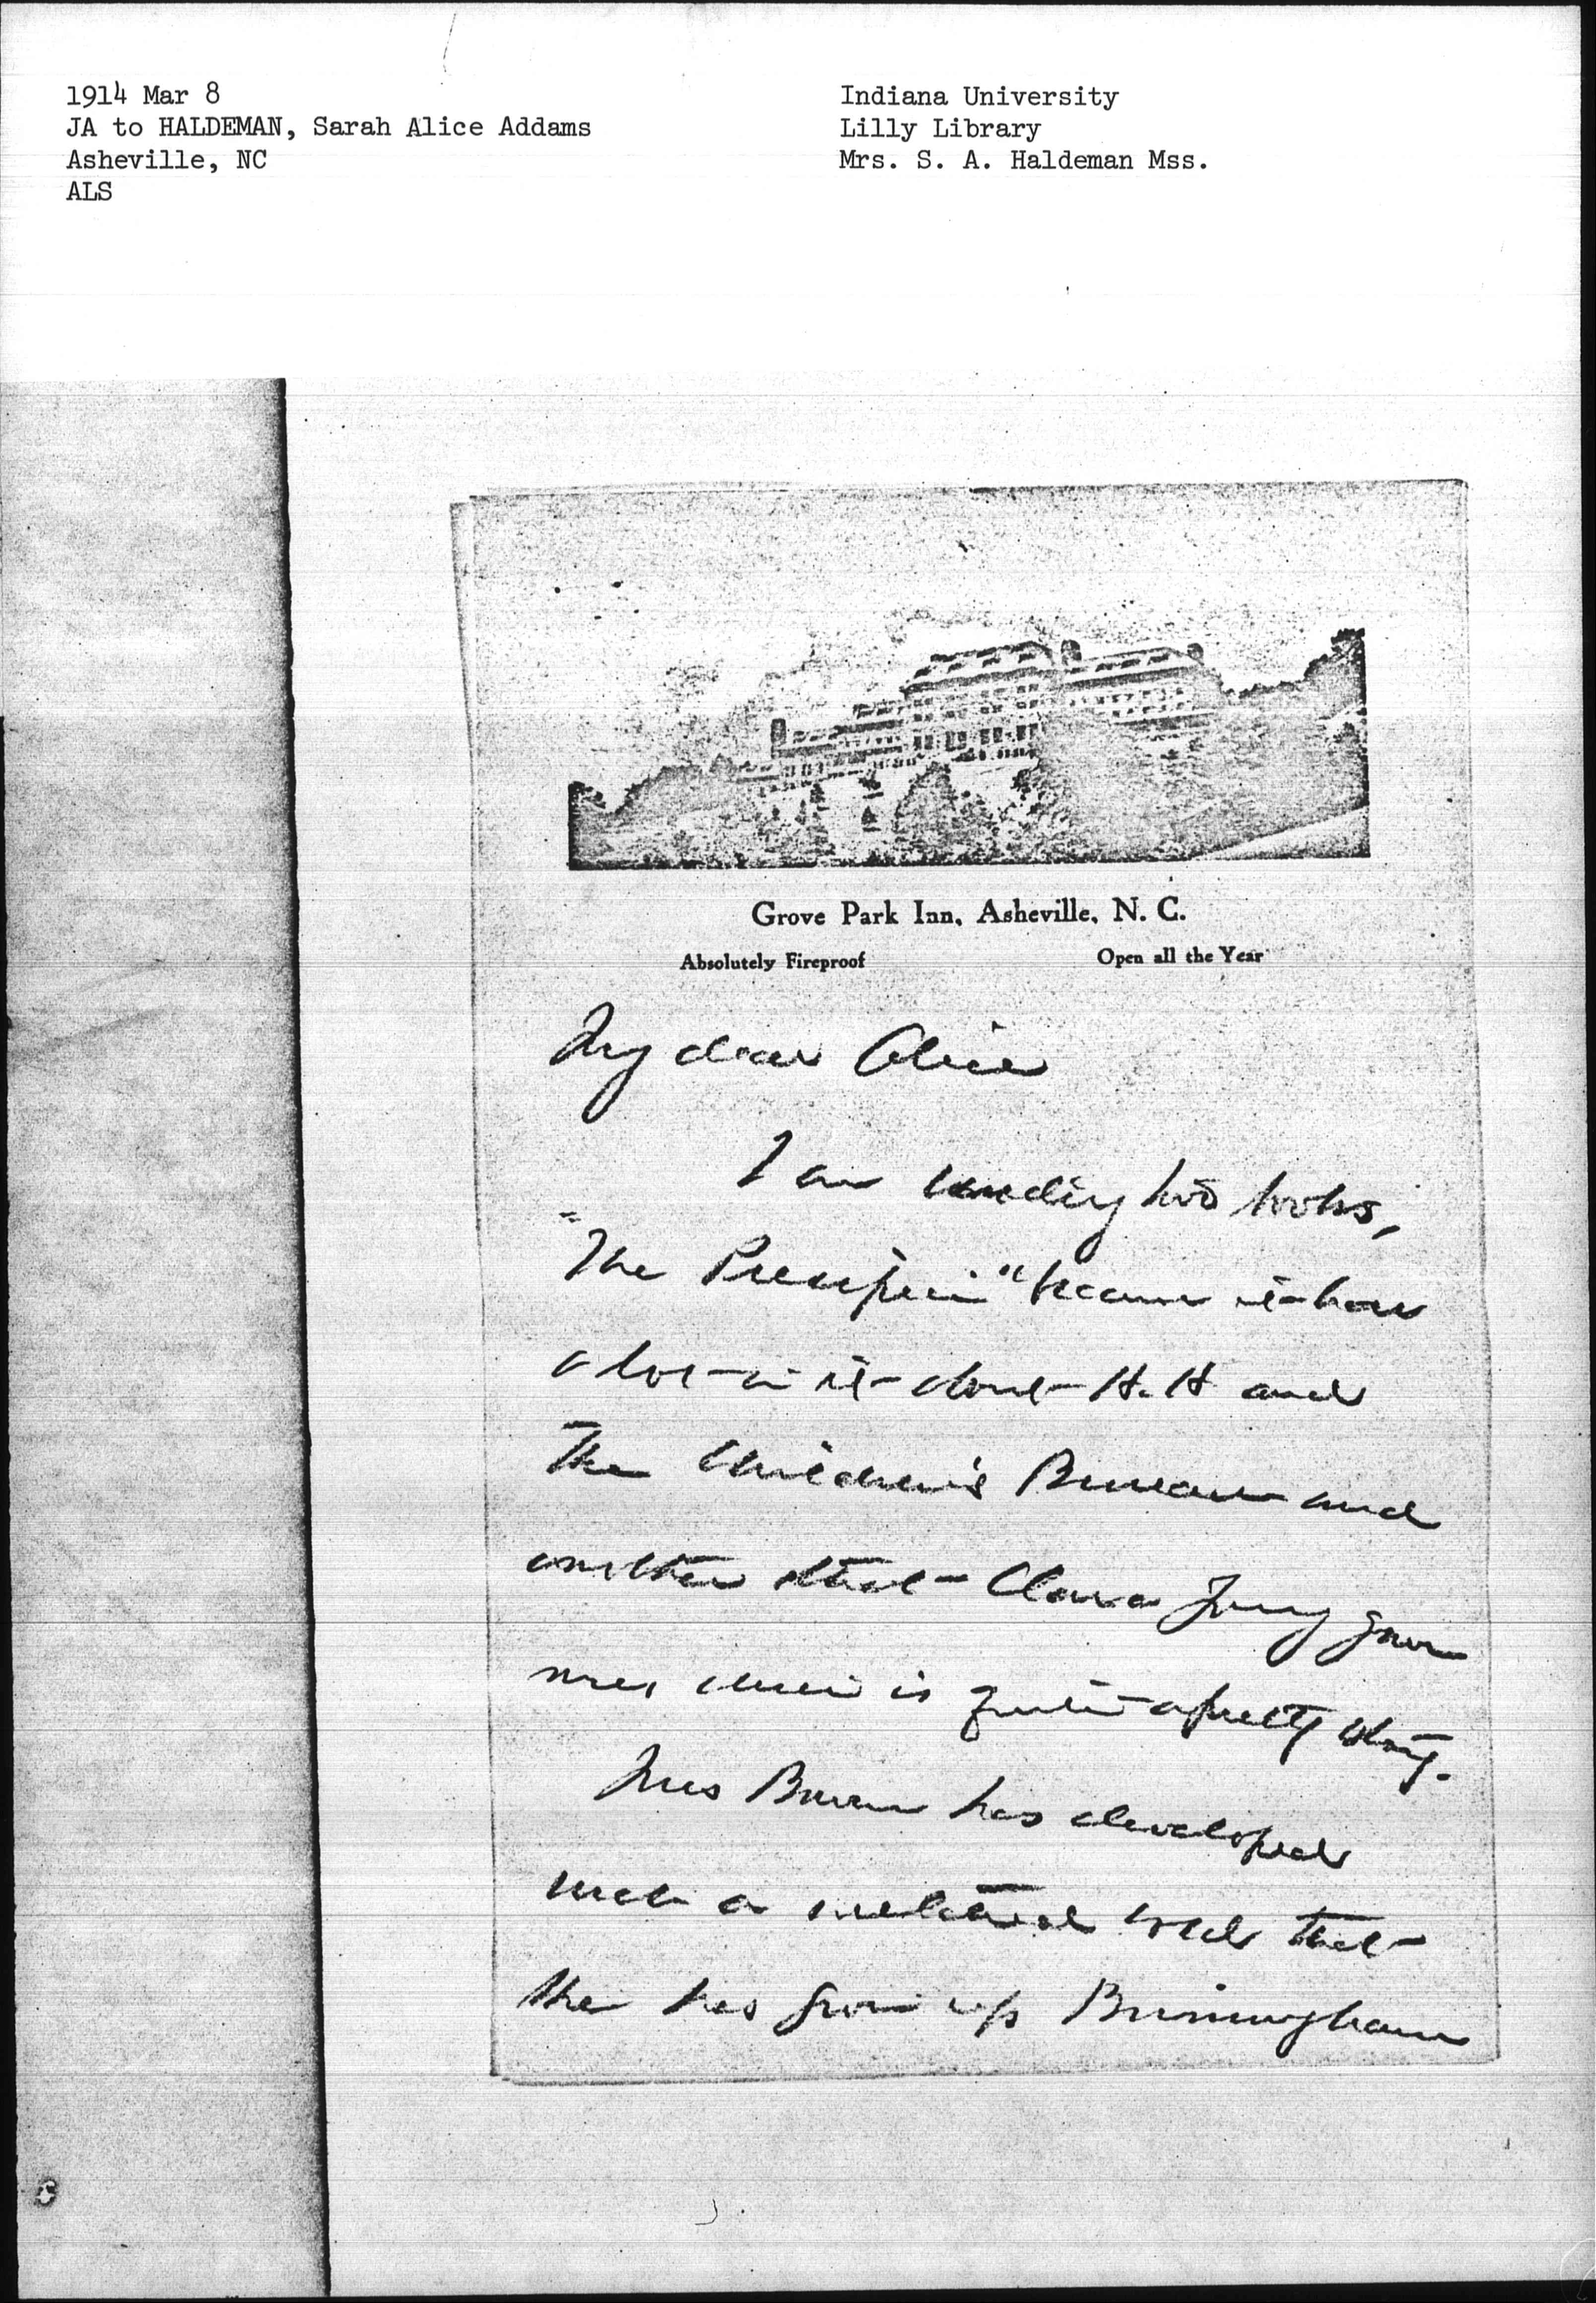 1914 Mar 8
JA to HALDEMAN, Sarah Alice Addams
Asheville, NC
ALS
Indiana University
Lilly Library
Mrs. S. A. Haldeman Mss.
Grove Park Inn, Asheville, N. C.
Absolutely Fireproof
Open all the Year
My dear Alice
I am sending two books,
"The Precipice" because it has
a lot in it about H. H and
The Children's Bureau and
another that Clara
me, is quite a pretty story.
Mrs Bowen has developed
such a cold that
she has given up Birmingham